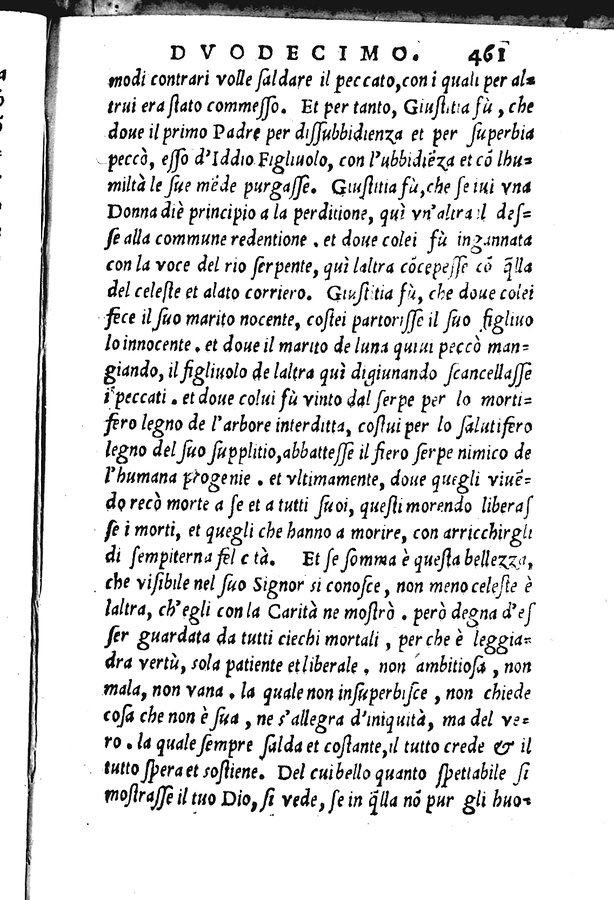 DVODECIMO. 461
modi contrari volle ſaldare il peccato, con i quali per al=
trui era ſtato commeſſo. Et per tanto, Giuſtitia fù, che
doue il primo Padre per diſſubbidienza et per ſuperbia
peccò, eſſo d'Iddio Figliuolo, con l'ubbidiẽza et cõ lhu=
miltà le ſue mẽde purgaſſe. Giuſtitia fù, che ſe iui vna
Donna diè principio a la perditione, quì vn'altra il deſ=
ſe alla commune redentione. et doue colei fù ingannata
con la voce del rio ſerpente, quì laltra cõcepeſſe cõ q̃lla
del celeſte et alato corriero. Giuſtitia fù, che doue colei
fece il ſuo marito nocente, coſtei partoriſſe il ſuo figliuo
lo innocente. et doue il marito de luna quiui peccò man=
giando, il figliuolo de laltra quì digiunando ſcancellaſſe
i peccati. et doue colui fù vinto dal ſerpe per lo morti=
fero legno de l'arbore interditta, coſtui per lo ſalutifero
legno del ſuo ſupplitio, abbatteſſe il fiero ſerpe nimico de
l'humana progenie. et vltimamente, doue quegli viuẽ=
do recò morte a ſe et a tutti ſuoi, queſti morendo liberaſ
ſe i morti, et quegli che hanno a morire, con arricchirgli
di ſempiterna fel c tà. Et ſe ſomma è queſta bellezza,
che viſibile nel ſuo Signor si conoſce, non meno celeſte è
laltra, ch'egli con la Carità ne moſtrò. però degna d'eſ
ſer guardata da tutti ciechi mortali, per che è leggia=
dra vertù, sola patiente et liberale. non ambitioſa, non
mala, non vana. la quale non inſuperbiſce, non chiede
coſa che non è ſua, ne s'allegra d'iniquità, ma del ve=
ro. la quale ſempre ſalda et coſtante, il tutto crede & il
tutto ſpera et ſoſtiene. Del cui bello quanto ſpettabile ſi
moſtraſſe il tuo Dio, ſi vede, ſe in q̃lla nõ pur gli huo=